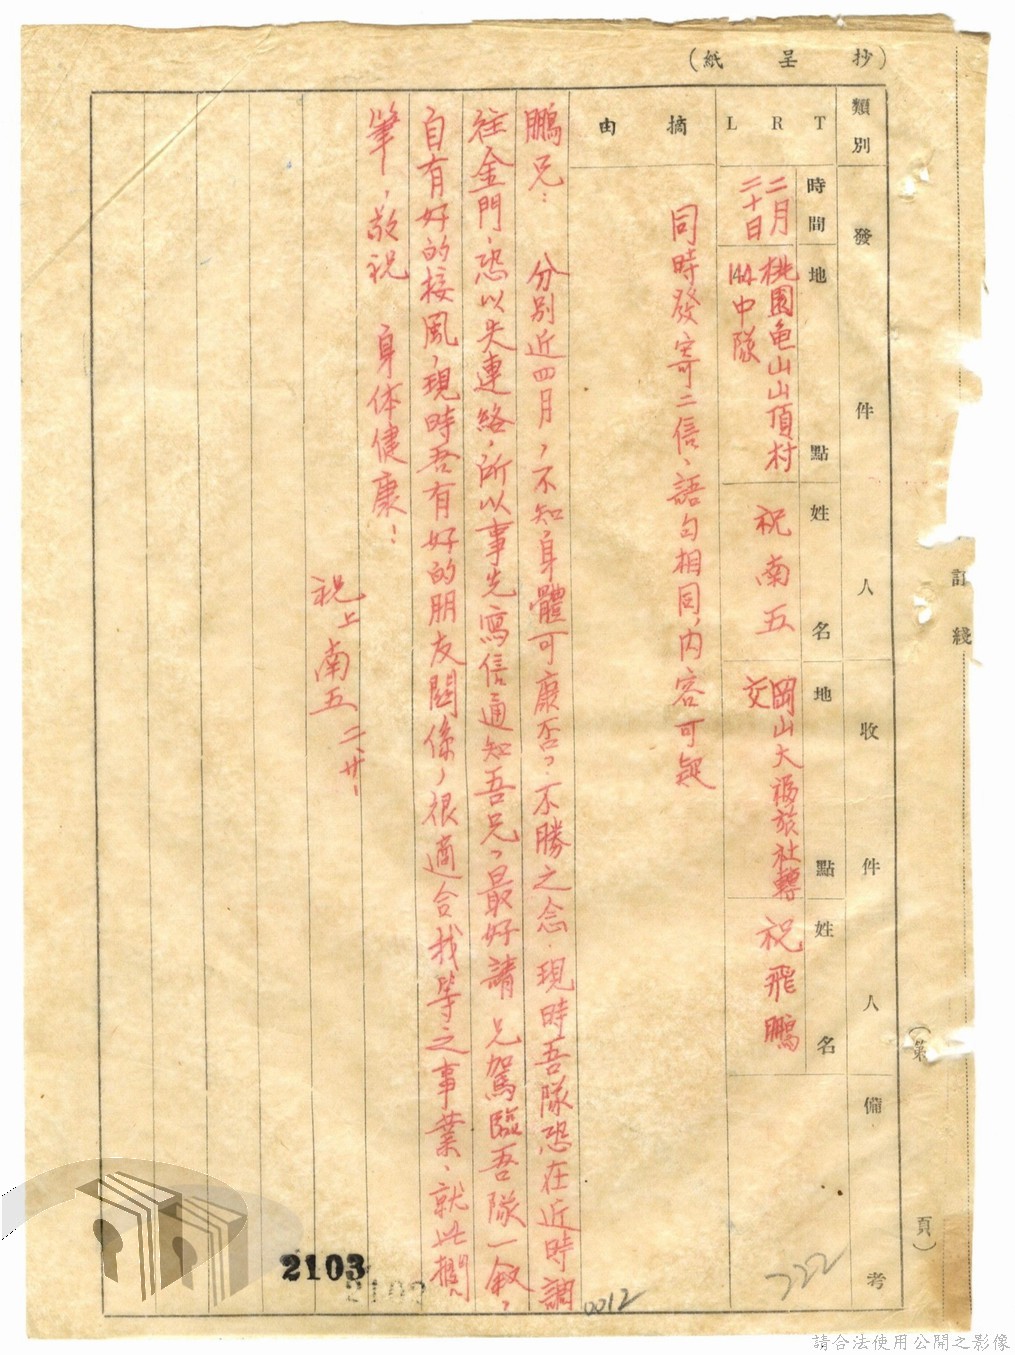 (抄呈紙)
類別
發件人
收件人
備考
TRL
時間
地點
姓名
地點
姓名
二月二十日
桃園龟山山頂村
144中隊
祝南五
岡山大福旅社轉
交
祝飛鵬
摘由
同時發寄二信、語句相同,內容可疑
鵬兄: 分別近四月,不知身體可康否?不勝之念.現時吾隊恐在近時調
往金門,恐以失連絡,所以事先寫信通知吾兄,最好請 兄駕臨吾隊一敘,
自有好的接風,現時吾有好的朋友關係,很適合找等之事業、就此擱
筆,敬祝 身体健康!
祝上南五 二、廿、
訂綫
(第
頁)
2103
2103
0012
722
請合法使用公開之影像